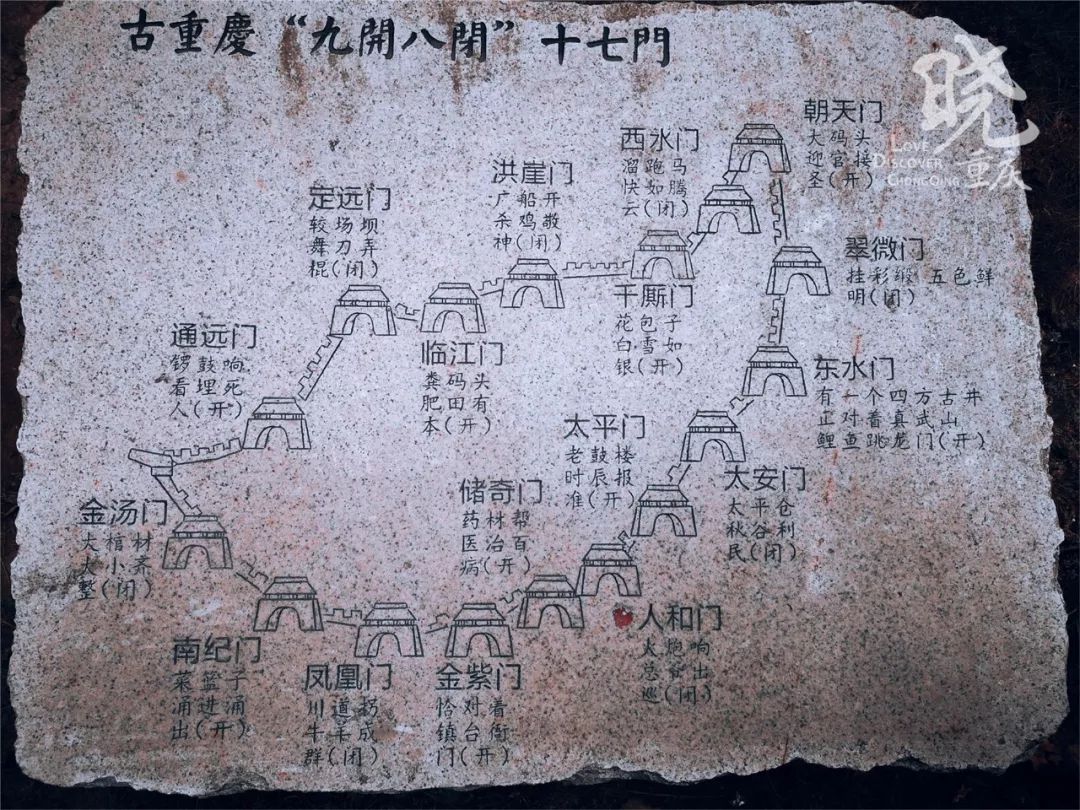 古重慶“九開八閉”十七門
晓
LOVE
DISCOVER
CHONGQING
重庆
朝天门
大码头
迎官接
圣(开)
西水门
溜跑马
快如腾
云(闭)
洪崖门
广船开
杀鸡敬
神(闭)
定远门
较场坝
舞刀弄
棍(闭)
翠微门
挂彩缎 五色鲜
明(闭)
千厮门
花包子
白雪如
银(开)
通远门
锣鼓响
看埋死
人(开)
临江门
粪码头
肥田有
本(开)
东水门
有一个四方古井
正对着真武山
鲤鱼跳龙门(开)
太平门
老鼓楼
时辰报
准(开)
太安门
太平仓
积谷利
民(闭)
储奇门
药材帮
医治百
病(开)
金汤门
大棺材
大小齐
整(闭)
人和门
火炮响
总爷出
巡(闭)
南纪门
菜篮子
涌进涌
出(开)
凤凰门
川道拐
牛羊成
群(闭)
金紫门
恰对着
镇台衙
门(开)